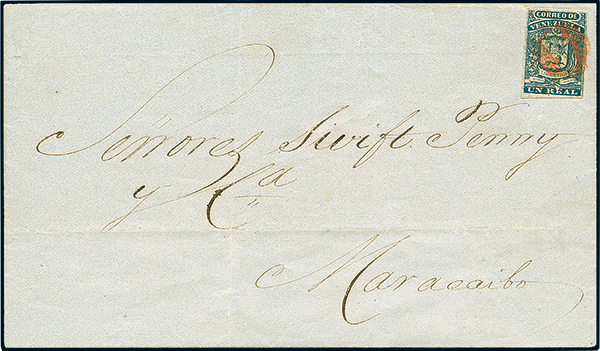 CORREO DE
VENEZUELA
UN REAL
Señores Swift Penny
y Ca
Maracaibo